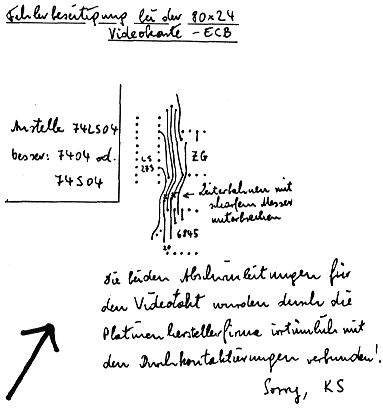 Fehlerbeseitigung bei der 80x24
Videokarte - ECB
Anstelle 74LS04
besser: 7404 od.
74S04
LS
273
ZG
Leiterbahnen mit
scharfem Messer
unterbrechen
6845
20
Die beiden Abschirmleitungen für
den Videotakt wurden durch die
Platinenherstellerfirma irrtümlich mit
den Durchkontaktierungen verbunden!
Sorry, KS